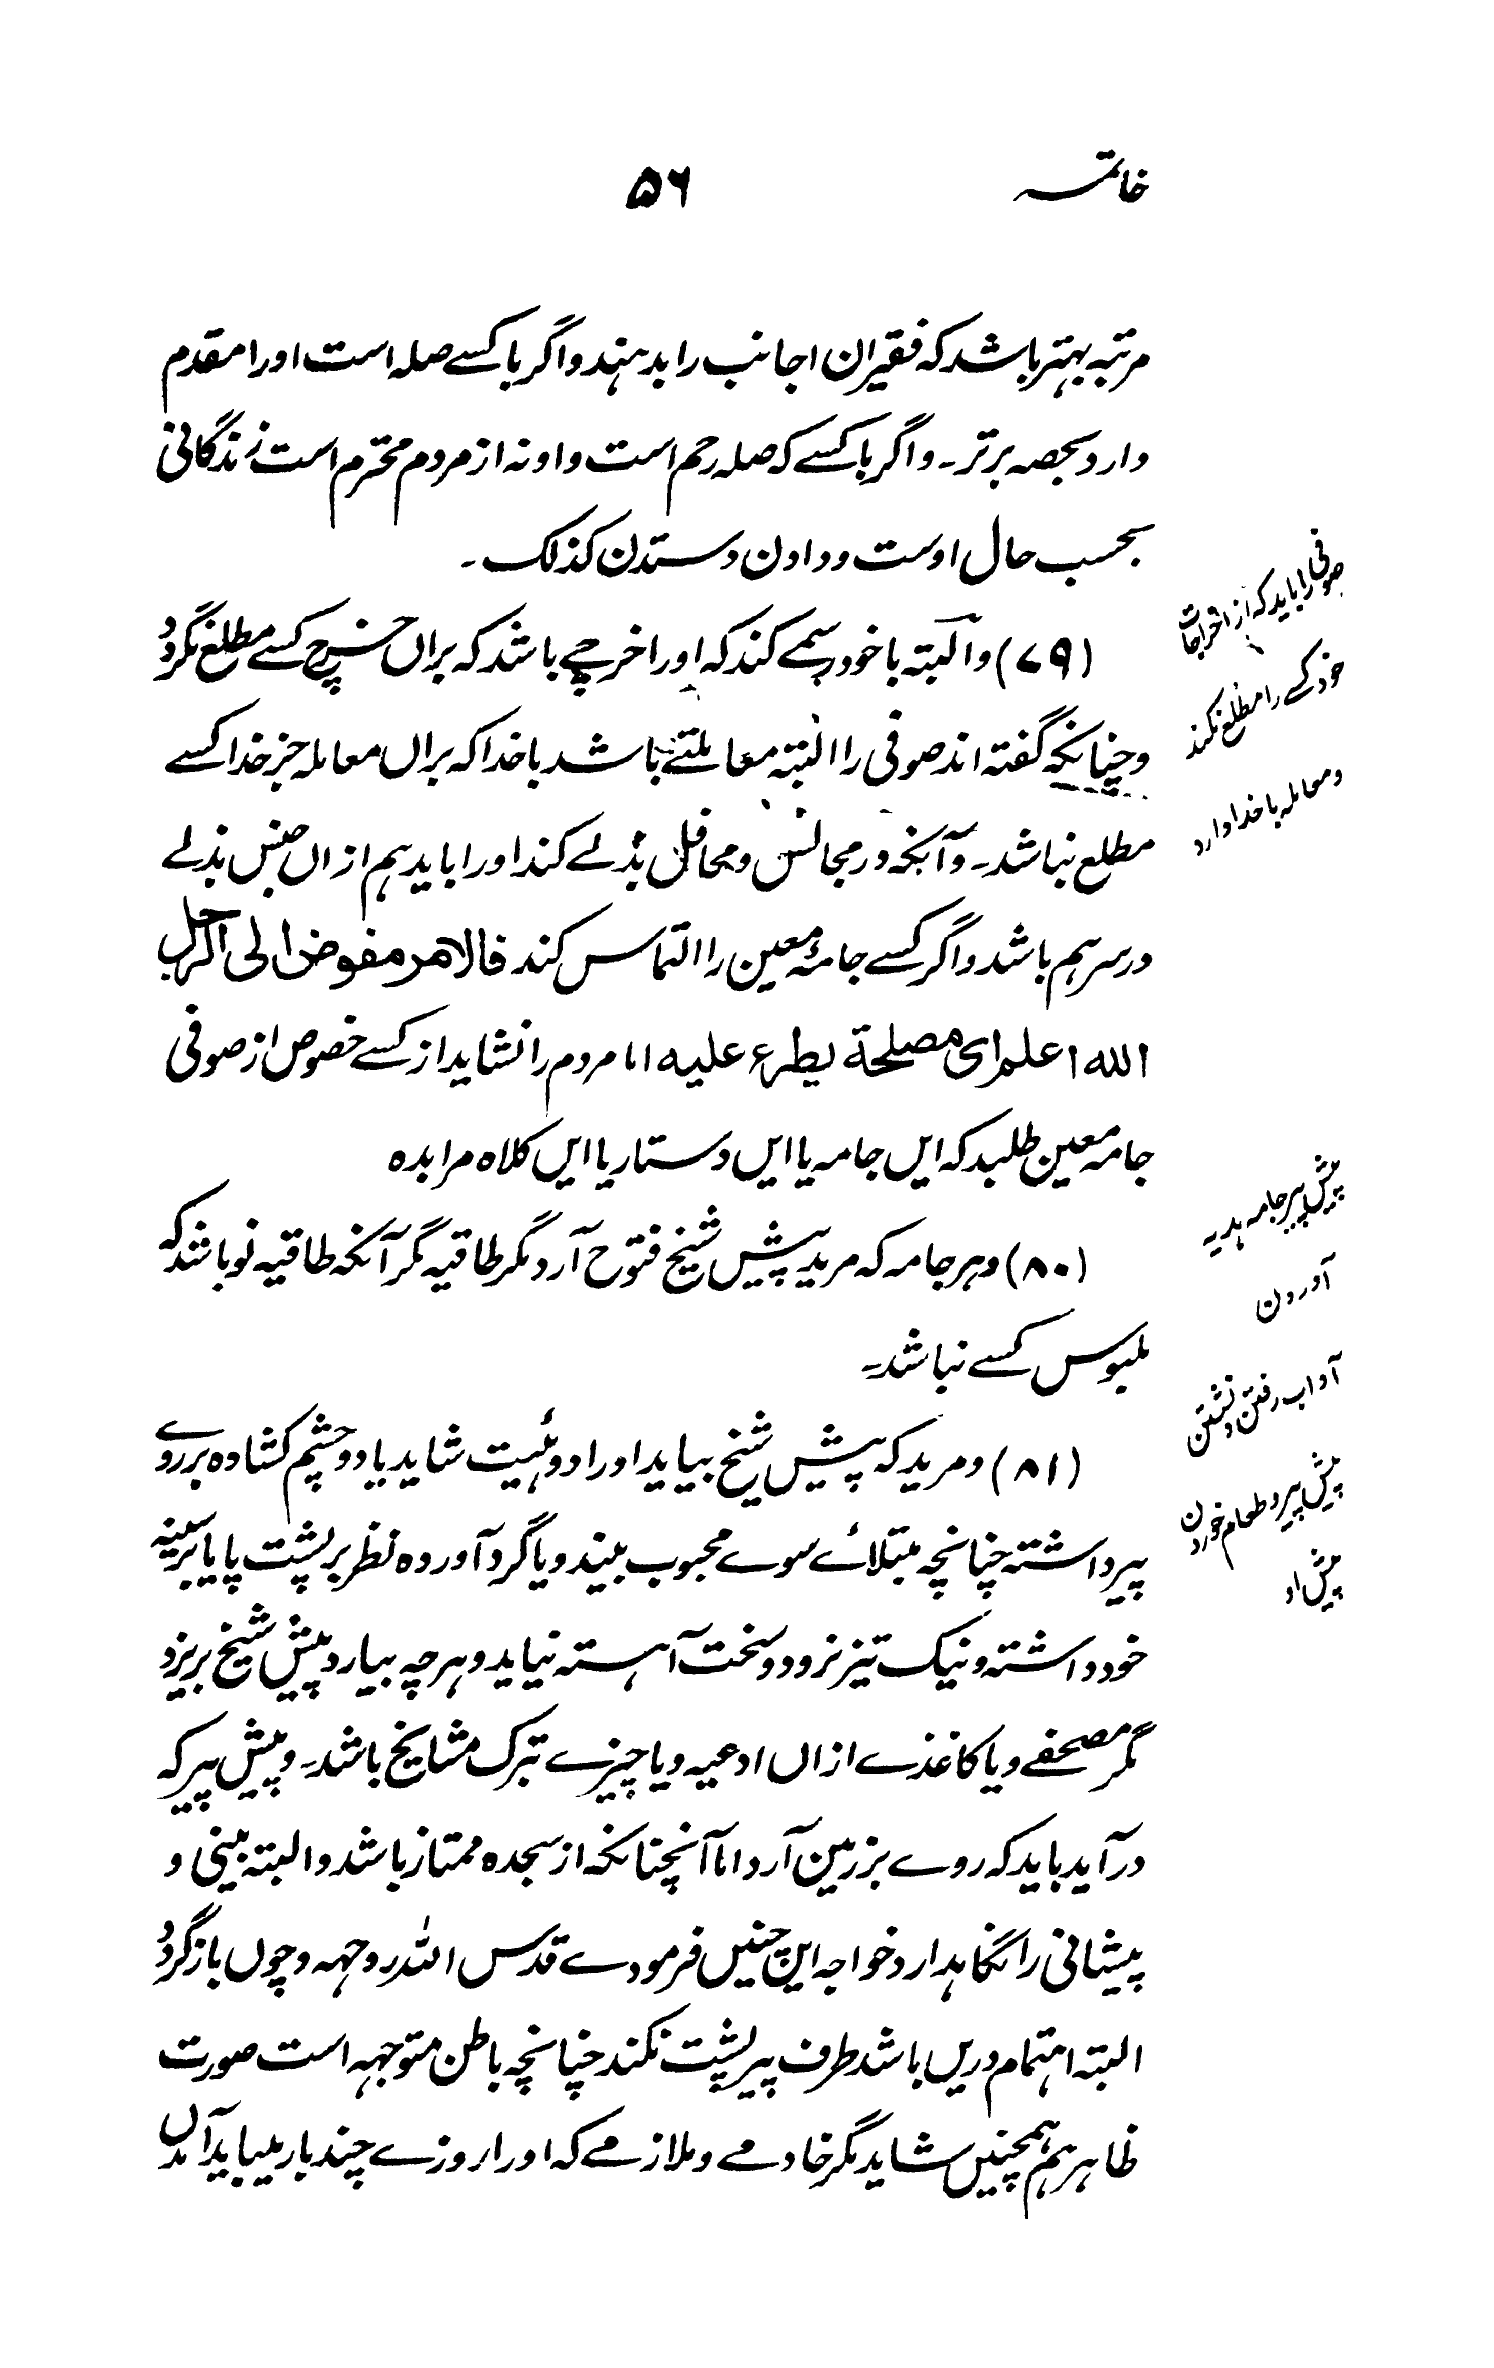 خاتمہ ۵۶
مرتبہ بہتر باشد کہ فقیران اجانب را بدہند و اگر با کسے صلہ است اورا مقدم
دارد بحصہ برتر۔ و اگر با کسے کہ صلہ رحم است و او نہ از مردم محترم است زندگانی
بحسب حال اوست و دادن و ستدن کذلک۔
(۷۹) و البتہ با خود رسمے کند کہ اورا خرچے باشد کہ براں خرچ کسے مطلع نگردد
و چنانکہ گفتہ اند صوفی را البتہ معاملتے باشد با خدا کہ براں معاملہ جز خدا کسے
مطلع نباشد۔ و آنکہ در مجالس و محافل بذلے کند اورا باید ہم ازاں جنس بذلے
در سر ہم باشد و اگر کسے جامۂ معین را التماس کند فالامر مفوض الی الرجل
الله اعلم ای مصلحة یطرء علیه اما مردم را نشاید از کسے خصوص از صوفی
جامہ معین طلبد کہ ایں جامہ یا ایں دستار یا ایں کلاہ مرا بدہ
(۸۰) و ہر جامہ کہ مرید پیش شیخ فتوح آرد مگر طاقیہ مگر آنکہ طاقیہ نو باشد کہ
ملبوس کسے نباشد۔
(۸۱) و مرید کہ پیش شیخ بیاید اورا دو ہئیت شاید یا دو چشم کشادہ بر روے
پیر داشتہ چنانچہ مبتلائے سوے محبوب بیند و یا گرد آوردہ نظر بر پشت پا یا بر سینہ
خود داشتہ و نیک تیز نرود و سخت آہستہ نیاید و ہر چہ بیارد پیش شیخ بریزد
مگر مصحفے و یا کاغذے ازاں ادعیہ و یا چیزے تبرک مشایخ باشد۔ و پیش پیر کہ
در آید باید کہ روے بر زمین آرد اما آنچنانکہ از سجدہ ممتاز باشد و البتہ بینی و
پیشانی را نگاہدارد خواجہ این چنیں فرمودے قدس اللہ روحہہ و چوں باز گردد
البتہ اہتمام دریں باشد طرف پیر پشت نکند چنانچہ باطن متوجہہ است صورت
ظاہر ہم ہمچنیں شاید مگر خادمے و ملازمے کہ اورا روزے چند بار میباید آمدن
صوفی را باید کہ از اخراجات
خود کسے را مطلع نکند
و معاملہ با خدا دارد
پیش پیر جامہ ہدیہ
آوردن
آداب رفتن و نشستن
پیش پیر و طعام خوردن
پیش او